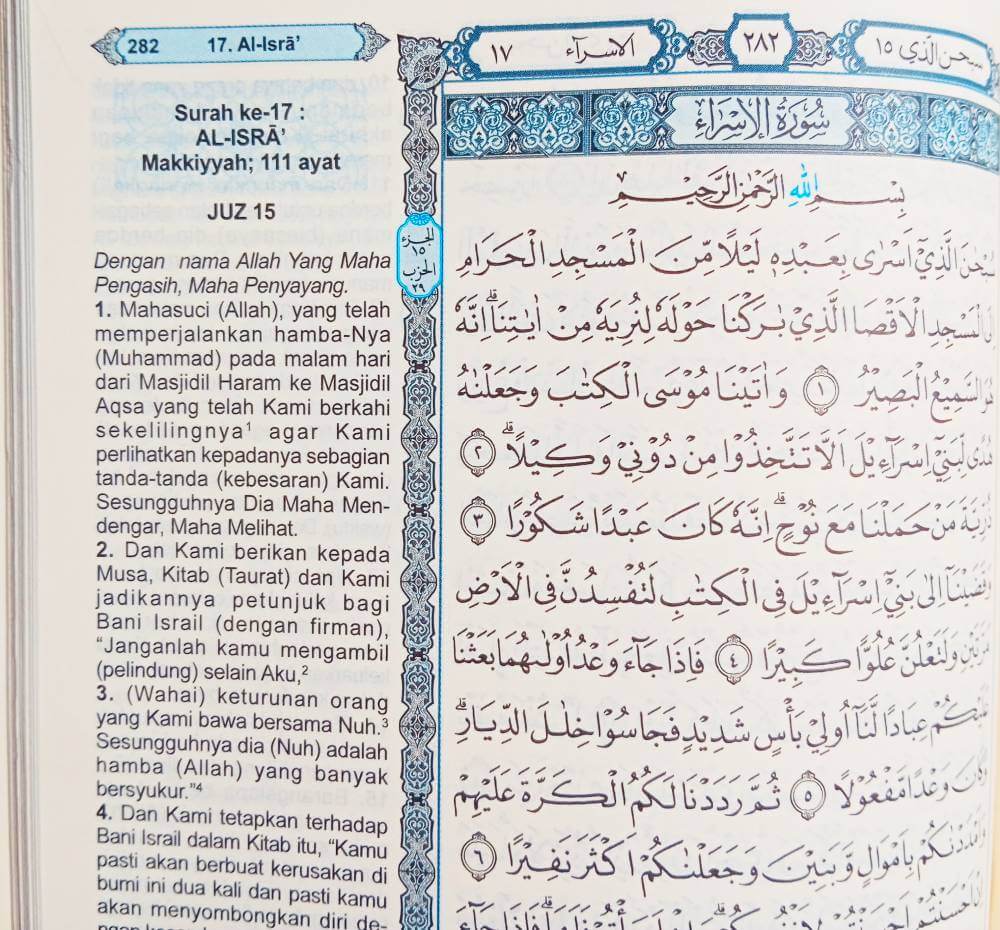 282 17. Al-Isrā’
Surah ke-17 :
AL-ISRĀ’
Makkiyyah; 111 ayat
JUZ 15
Dengan nama Allah Yang Maha
Pengasih, Maha Penyayang.
1. Mahasuci (Allah), yang telah
memperjalankan hamba-Nya
(Muhammad) pada malam hari
dari Masjidil Haram ke Masjidil
Aqsa yang telah Kami berkahi
sekelilingnya¹ agar Kami
perlihatkan kepadanya sebagian
tanda-tanda (kebesaran) Kami.
Sesungguhnya Dia Maha Men-
dengar, Maha Melihat.
2. Dan Kami berikan kepada
Musa, Kitab (Taurat) dan Kami
jadikannya petunjuk bagi
Bani Israil (dengan firman),
“Janganlah kamu mengambil
(pelindung) selain Aku,²
3. (Wahai) keturunan orang
yang Kami bawa bersama Nuh.³
Sesungguhnya dia (Nuh) adalah
hamba (Allah) yang banyak
bersyukur.”⁴
4. Dan Kami tetapkan terhadap
Bani Israil dalam Kitab itu, “Kamu
pasti akan berbuat kerusakan di
bumi ini dua kali dan pasti kamu
akan menyombongkan diri de-
الجزء
١٥
الحزب
٢٩
سبحن الذي ١٥ ٢٨٢ الاسرآء ١٧
سُوْرَةُ الْاِسْرَاءِ
بِسْمِ اللّٰهِ الرَّحْمٰنِ الرَّحِيْمِ
سُبْحٰنَ الَّذِيْٓ اَسْرٰى بِعَبْدِهٖ لَيْلًا مِّنَ الْمَسْجِدِ الْحَرَامِ
اِلَى الْمَسْجِدِ الْاَقْصَا الَّذِيْ بٰرَكْنَا حَوْلَهٗ لِنُرِيَهٗ مِنْ اٰيٰتِنَاۗ اِنَّهٗ
هُوَ السَّمِيْعُ الْبَصِيْرُ ١ وَاٰتَيْنَا مُوْسَى الْكِتٰبَ وَجَعَلْنٰهُ
هُدًى لِّبَنِيْٓ اِسْرَاۤءِيْلَ اَلَّا تَتَّخِذُوْا مِنْ دُوْنِيْ وَكِيْلًاۗ ٢
ذُرِّيَّةَ مَنْ حَمَلْنَا مَعَ نُوْحٍۗ اِنَّهٗ كَانَ عَبْدًا شَكُوْرًا ٣
وَقَضَيْنَآ اِلٰى بَنِيْٓ اِسْرَاۤءِيْلَ فِى الْكِتٰبِ لَتُفْسِدُنَّ فِى الْاَرْضِ
مَرَّتَيْنِ وَلَتَعْلُنَّ عُلُوًّا كَبِيْرًا ٤ فَاِذَا جَاۤءَ وَعْدُ اُوْلٰىهُمَا بَعَثْنَا
عَلَيْكُمْ عِبَادًا لَّنَآ اُولِيْ بَأْسٍ شَدِيْدٍ فَجَاسُوْا خِلٰلَ الدِّيَارِۗ
وَكَانَ وَعْدًا مَّفْعُوْلًا ٥ ثُمَّ رَدَدْنَا لَكُمُ الْكَرَّةَ عَلَيْهِمْ
وَاَمْدَدْنٰكُمْ بِاَمْوَالٍ وَّبَنِيْنَ وَجَعَلْنٰكُمْ اَكْثَرَ نَفِيْرًا ٦